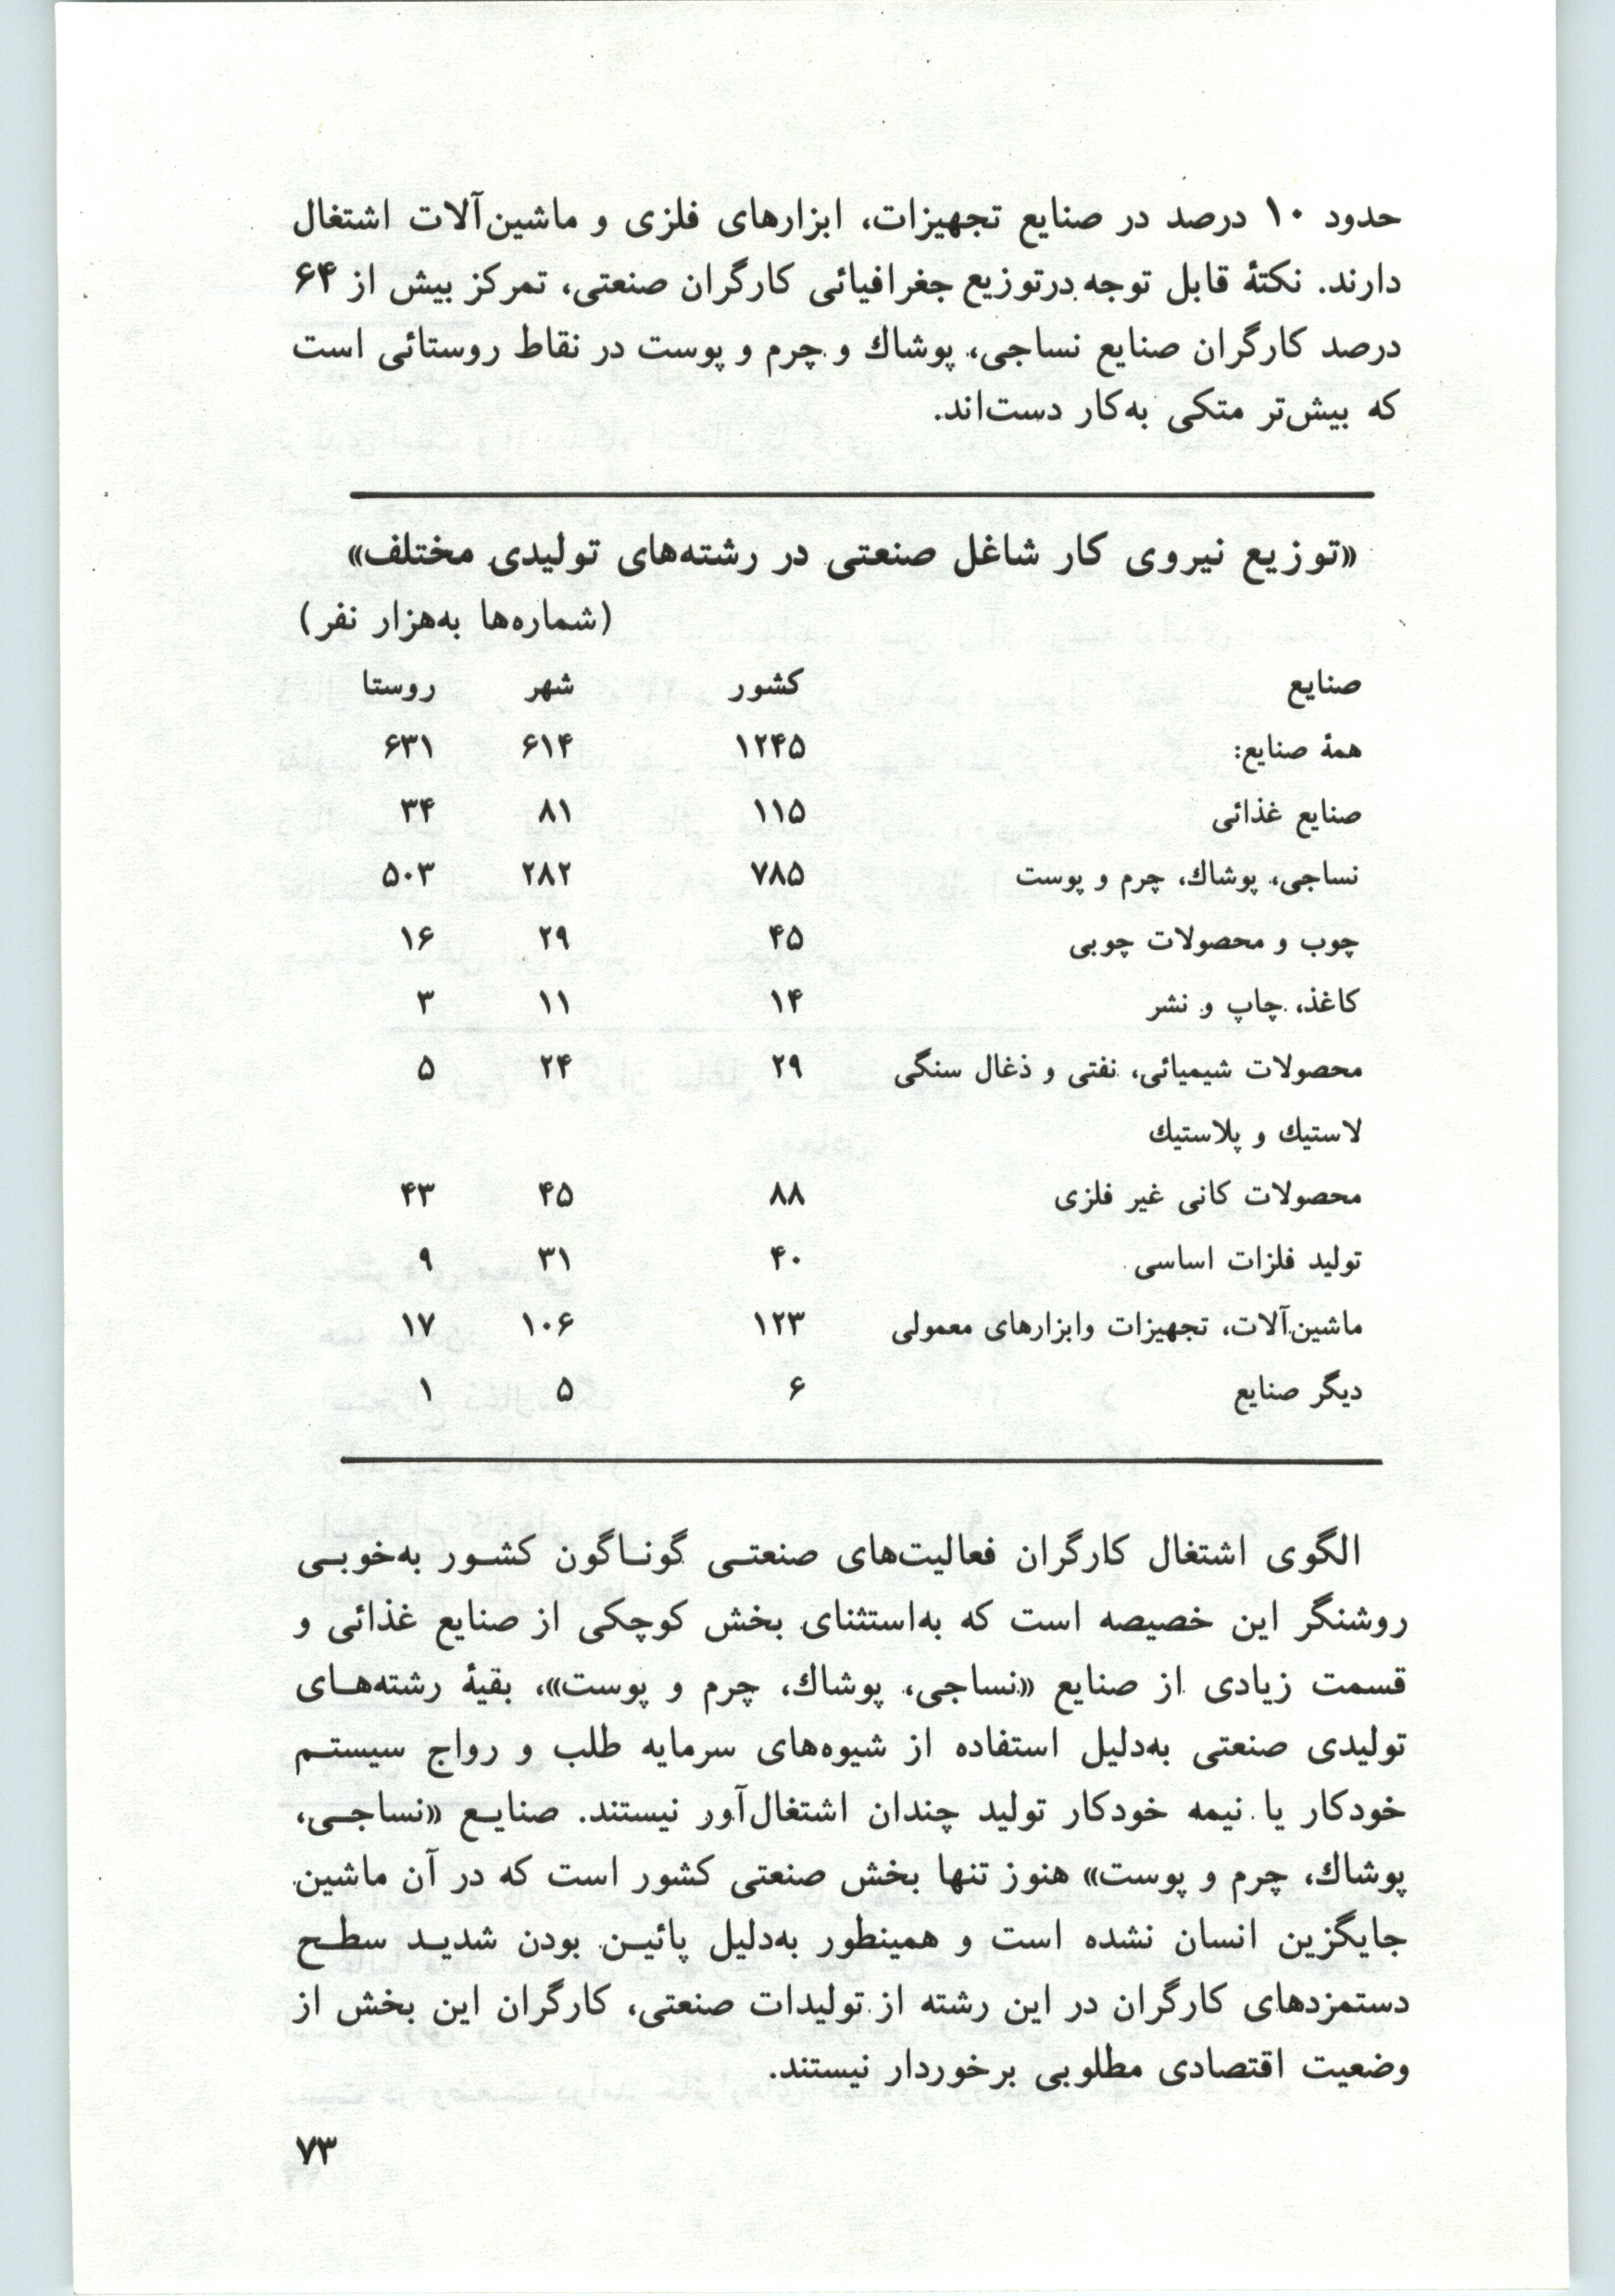 حدود ۱۰ درصد در صنایع تجهیزات، ابزارهای فلزی و ماشین‌آلات اشتغال
دارند. نکتهٔ قابل توجه درتوزیع جغرافیائی کارگران صنعتی، تمرکز بیش از ۶۴
درصد کارگران صنایع نساجی، پوشاك و چرم و پوست در نقاط روستائی است
که بیش‌تر متکی به‌کار دست‌اند.
«توزیع نیروی کار شاغل صنعتی در رشته‌های تولیدی مختلف»
(شماره‌ها به‌هزار نفر)
صنایع کشور شهر روستا
همهٔ صنایع: ۱۲۴۵ ۶۱۴ ۶۳۱
صنایع غذائی ۱۱۵ ۸۱ ۳۴
نساجی، پوشاك، چرم و پوست ۷۸۵ ۲۸۲ ۵۰۳
چوب و محصولات چوبی ۴۵ ۲۹ ۱۶
کاغذ، چاپ و نشر ۱۴ ۱۱ ۳
محصولات شیمیائی، نفتی و ذغال سنگی ۲۹ ۲۴ ۵
لاستیك و پلاستیك
محصولات کانی غیر فلزی ۸۸ ۴۵ ۴۳
تولید فلزات اساسی ۴۰ ۳۱ ۹
ماشین‌آلات، تجهیزات وابزارهای معمولی ۱۲۳ ۱۰۶ ۱۷
دیگر صنایع ۶ ۵ ۱
الگوی اشتغال کارگران فعالیت‌های صنعتـی گونـاگون کشـور به‌خوبـی
روشنگر این خصیصه است که به‌استثنای بخش کوچکی از صنایع غذائی و
قسمت زیادی از صنایع «نساجی، پوشاك، چرم و پوست»، بقیهٔ رشته‌هـای
تولیدی صنعتی به‌دلیل استفاده از شیوه‌های سرمایه طلب و رواج سیستـم
خودکار یا نیمه خودکار تولید چندان اشتغال‌آور نیستند. صنایـع «نساجـی،
پوشاك، چرم و پوست» هنوز تنها بخش صنعتی کشور است که در آن ماشین
جایگزین انسان نشده است و همینطور به‌دلیل پائیـن بودن شدیـد سطـح
دستمزدهای کارگران در این رشته از تولیدات صنعتی، کارگران این بخش از
وضعیت اقتصادی مطلوبی برخوردار نیستند.
۷۳